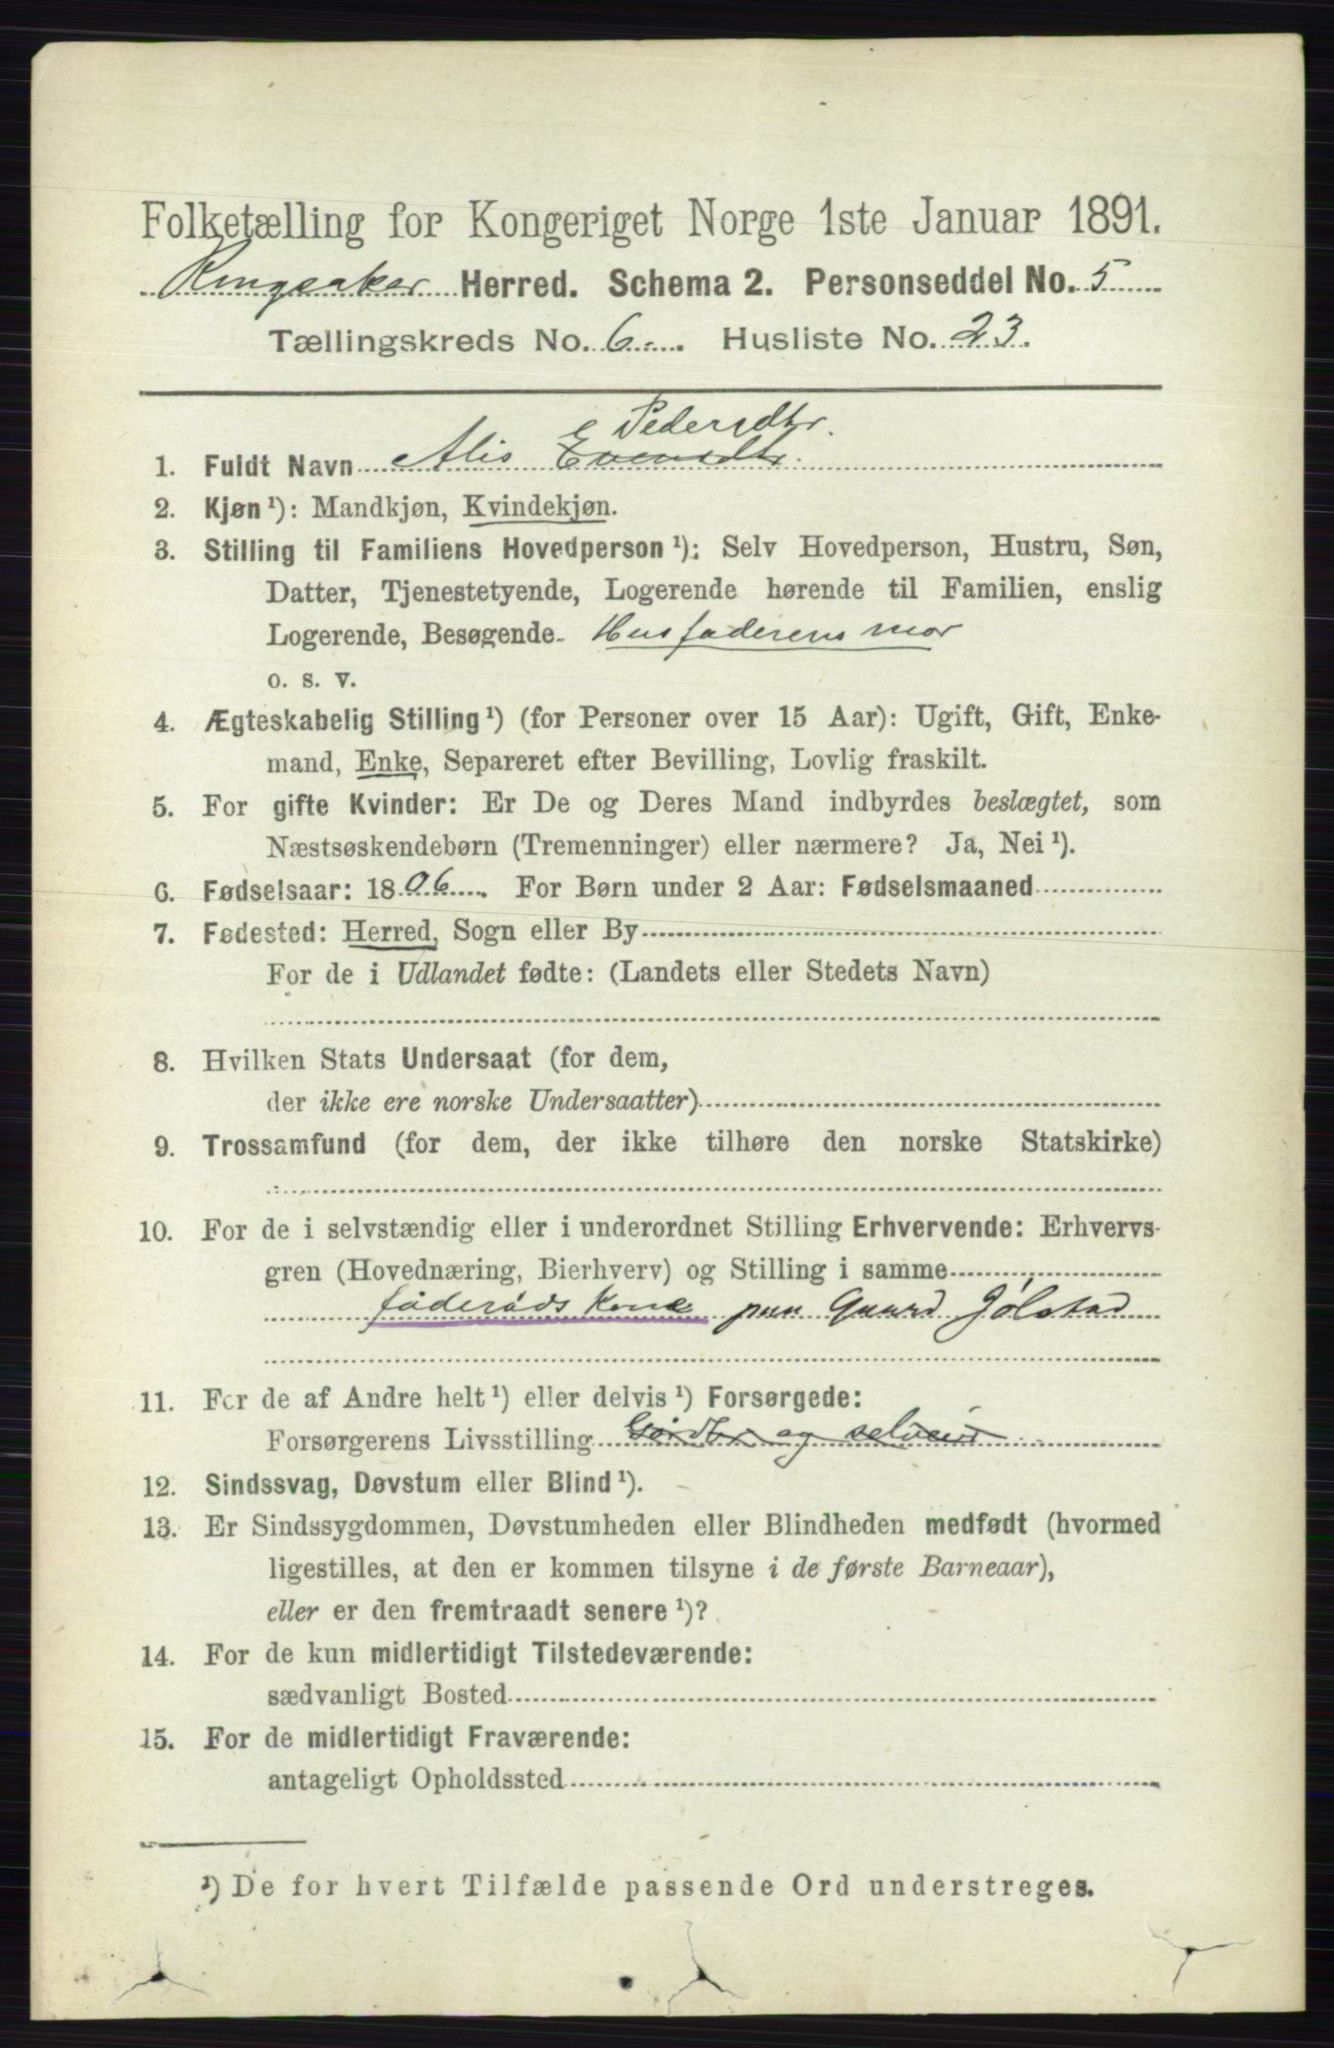 Folketælling for Kongeriget Norge 1ste Januar 1891.
Ringsaker Herred. Schema 2. Personseddel No. 5
Tællingskreds No. 6 Husliste No. 23.
Pedersdtr.
1. Fuldt Navn Alis Evensdtr.
2. Kjøn ¹): Mandkjøn, Kvindekjøn.
3. Stilling til Familiens Hovedperson ¹): Selv Hovedperson, Hustru, Søn,
Datter, Tjenestetyende, Logerende hørende til Familien, enslig
Logerende, Besøgende. Husfaderens mor
o. s. v.
4. Ægteskabelig Stilling ¹) (for Personer over 15 Aar): Ugift, Gift, Enke-
mand, Enke, Separeret efter Bevilling, Lovlig fraskilt.
5. For gifte Kvinder: Er De og Deres Mand indbyrdes beslægtet, som
Næstsøskendebørn (Tremenninger) eller nærmere? Ja, Nei ¹).
6. Fødselsaar: 1806. For Børn under 2 Aar: Fødselsmaaned
7. Fødested: Herred, Sogn eller By
For de i Udlandet fødte: (Landets eller Stedets Navn)
8. Hvilken Stats Undersaat (for dem,
der ikke ere norske Undersaatter)
9. Trossamfund (for dem, der ikke tilhøre den norske Statskirke)
10. For de i selvstændig eller i underordnet Stilling Erhvervende: Erhvervs-
gren (Hovednæring, Bierhverv) og Stilling i samme
føderåds kone paa Gaard Jølstad
11. For de af Andre helt ¹) eller delvis ¹) Forsørgede:
Forsørgerens Livsstilling Gårdbr og selveier
12. Sindssvag, Døvstum eller Blind ¹).
13. Er Sindssygdommen, Døvstumheden eller Blindheden medfødt (hvormed
ligestilles, at den er kommen tilsyne i de første Barneaar),
eller er den fremtraadt senere ¹)?
14. For de kun midlertidigt Tilstedeværende:
sædvanligt Bosted
15. For de midlertidigt Fraværende:
antageligt Opholdssted
¹) De for hvert Tilfælde passende Ord understreges.